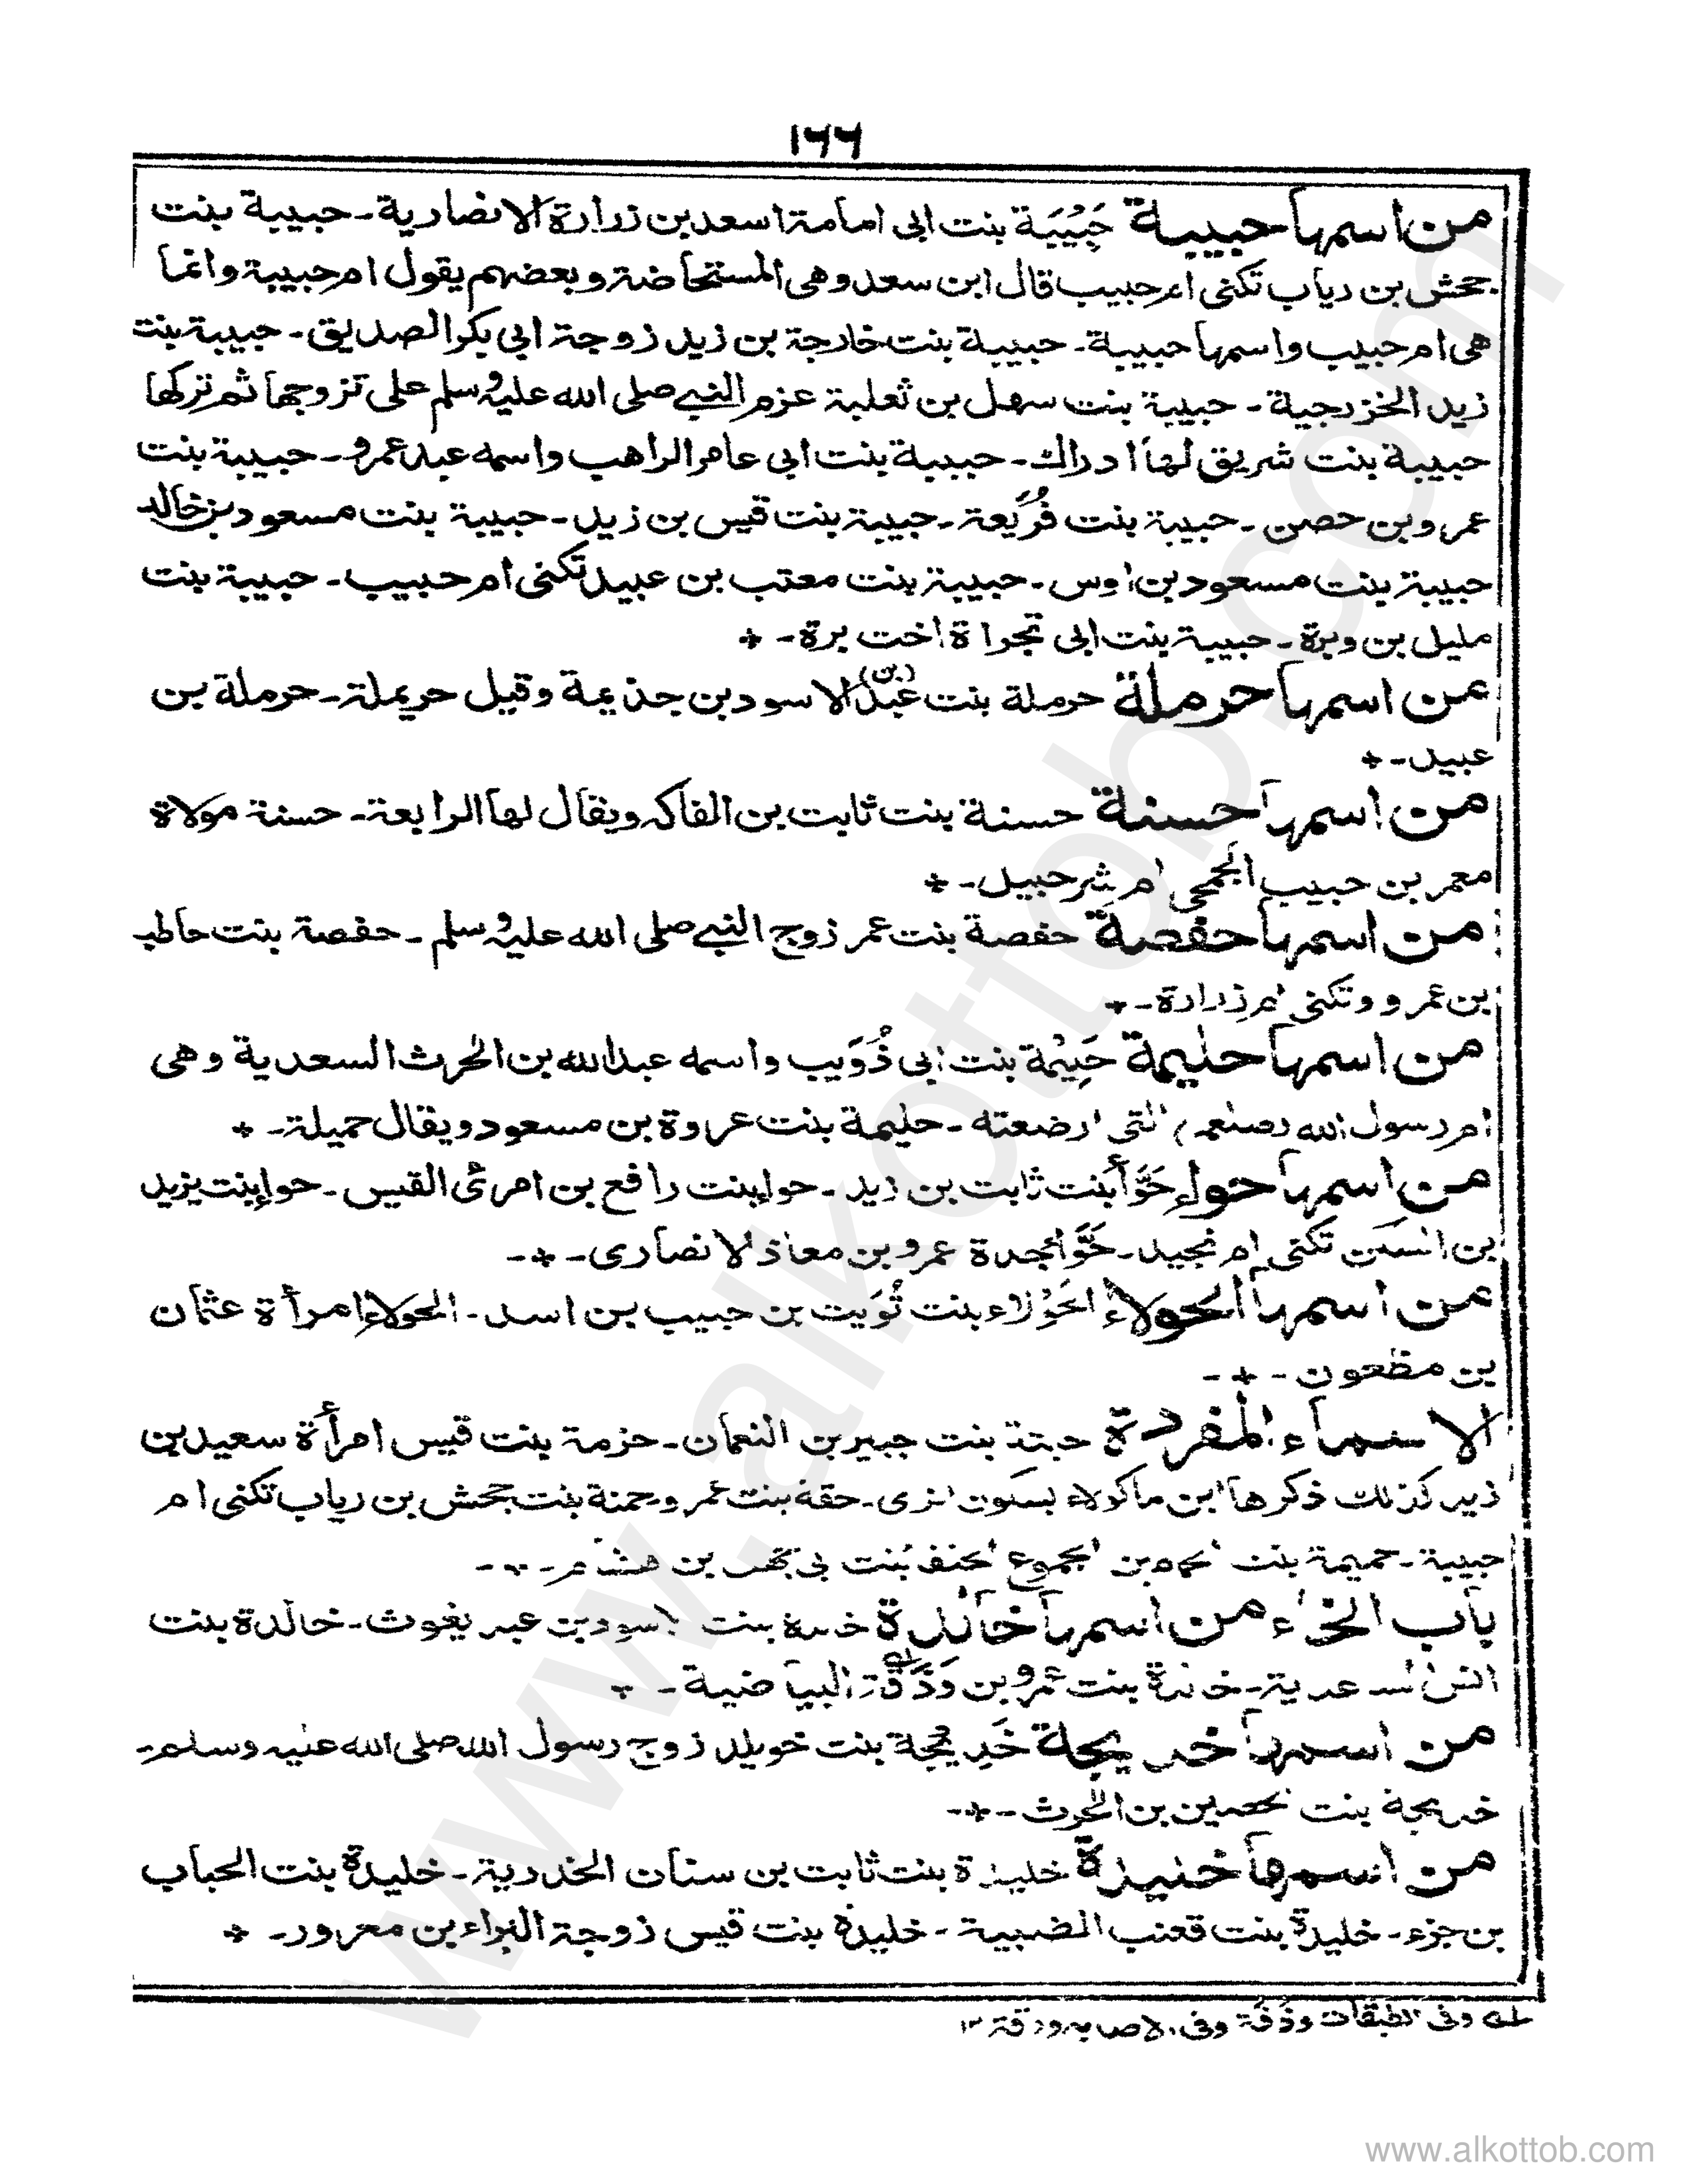 ١٦٦
من اسمها حبيبة حَبِيْبَة بنت ابى امامة اسعد بن زرارة الانصارية - حبيبة بنت
جحش بن رياب تكنى ام حبيب قال ابن سعد وهى المستحاضة وبعضهم يقول ام حبيبة وانما
هى ام حبيب واسمها حبيبة - حبيبة بنت خارجة بن زيد زوجة ابى بكر الصديق - حبيبة بنت
زيد الخزرجية - حبيبة بنت سهل بن ثعلبة عزم النبى صلى الله عليه وسلم على تزوجها ثم تركها
حبيبة بنت شريق لها ادراك - حبيبة بنت ابى عامر الراهب واسمه عبد عمرو - حبيبة بنت
عمرو بن حصن - حبيبة بنت فُرَيعة - حبيبة بنت قيس بن زيد - حبيبة بنت مسعود بن خالد
حبيبة بنت مسعود بن اوس - حبيبة بنت معتب بن عبيد تكنى ام حبيب - حبيبة بنت
مليل بن وبرة - حبيبة بنت ابى تجراة اخت برة - *
من اسمها حرملة حرملة بنت عبد (بن) الاسود بن جذيمة وقيل حريملة - حرملة بن
عبيد - *
من اسمها حسنة حسنة بنت ثابت بن الفاكه ويقال لها الرابعة - حسنة مولاة
معمر بن حبيب الجمحى ام شرحبيل - *
من اسمها حفصة حفصة بنت عمر زوج النبى صلى الله عليه وسلم - حفصة بنت حاطب
بن عمرو وتكنى ام زرارة - *
من اسمها حليمة حَلِيْمة بنت ابى ذُوَيب واسمه عبد الله بن الحرث السعدية وهى
ام رسول الله (صلعم) التى ارضعته - حليمة بنت عروة بن مسعود ويقال جميلة - *
من اسمها حواء حَوَّاء بنت ثابت بن زيد - حواء بنت رافع بن امرئ القيس - حواء بنت يزيد
بن السكن تكنى ام نجيد - حَوَّاء جدة عمرو بن معاذ الانصارى - * -
من اسمها الحولاء الحَوْلاء بنت تُوَيت بن حبيب بن اسد - الحولاء امرأة عثمان
بن مظعون - * -
الاسماء المفردة حبتة بنت جبير بن النعمان - حزمة بنت قيس امرأة سعيد بن
زيد كذلك ذكرها ابن ماكولاء بسكون الزى - حقة بنت عمرو - حمنة بنت جحش بن رياب تكنى ام
حبيبة - حميمة بنت بن الجموح بنت بن هشام - * -
باب الخاء من اسمها خالدة خالدة بنت الاسود بن عبد يغوث - خالدة بنت
انس الساعدية - خالدة بنت عمرو بن وَذَقَة البياضية - *
من اسمها خديجة خَدِيجة بنت خويلد زوج رسول الله صلى الله عليه وسلم -
خديجة بنت الحصين بن الحرث - * -
من اسمها خليدة خليدة بنت ثابت بن سنان الخدرية - خليدة بنت الحباب
بن جزء - خليدة بنت قعنب الضبية - خليدة بنت قيس زوجة البراء بن معرور - *
له وفى الطبقات وذْفَة وفى الاصابه ودقة ١٢
www.alkottob.com
www.alkottob.com